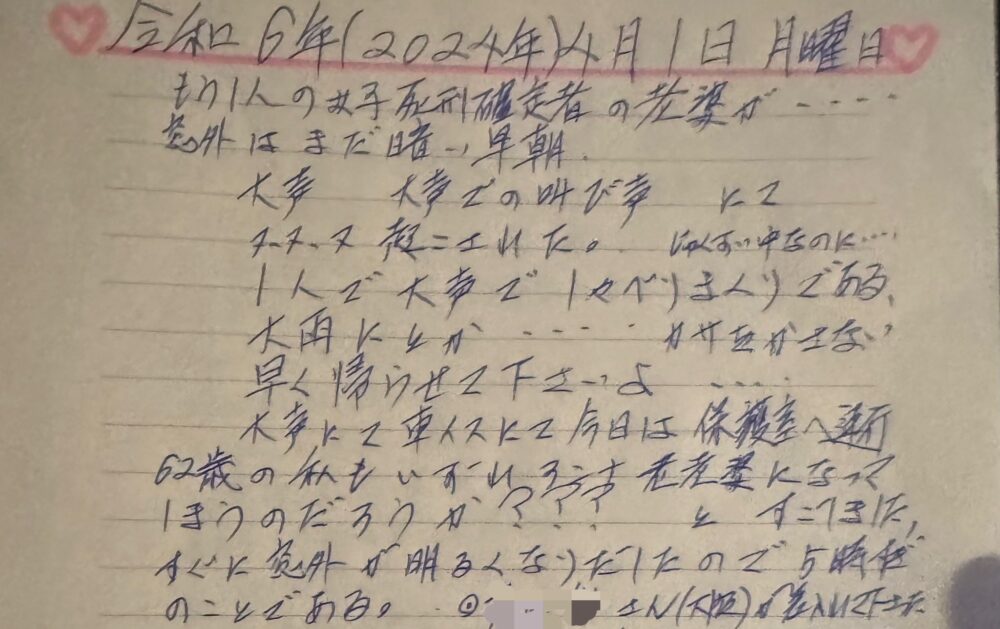 令和6年(2024年)4月1日 月曜日
もう1人の女子死刑確定者の老婆が‥‥
窓外はまだ暗い早朝.
大声 大声での叫び声 にて
起こされた。 じゅくすい中なのに‥‥
1人で大声でしゃべりまくりである、
大雨にとか‥‥ カサをかさない
早く帰らせて下さいよ ‥‥
大声にて車イスにて今日は保護室へ連行
62歳の私もいずれ 老老婆になって
しまうのだろうか??? と
すぐに窓外が明るくなりだしたので5時
のことである。 ◎ さん(大阪)が